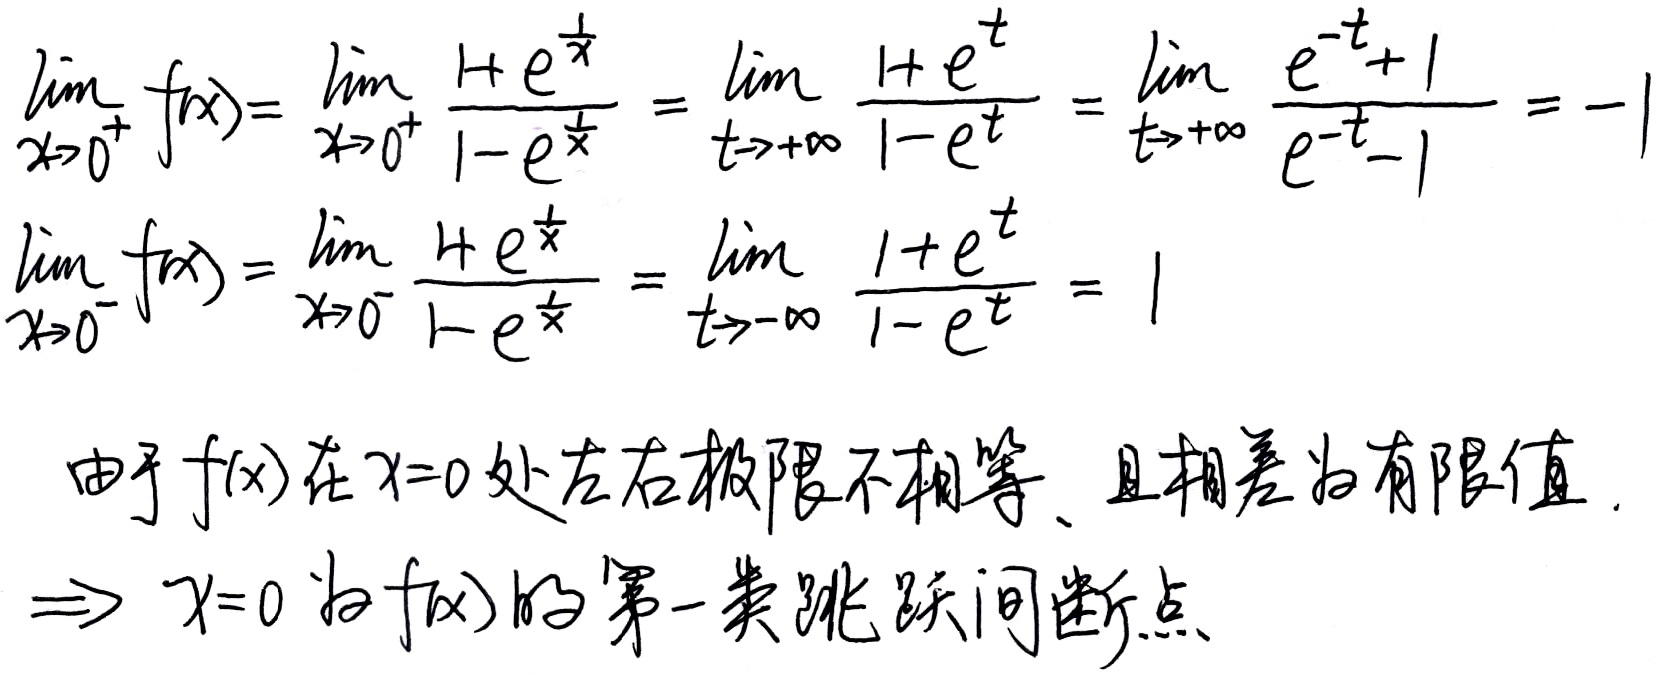 lim_{x→0⁺} f(x) = lim_{x→0⁺} (1+e^{1/x})/(1-e^{1/x}) = lim_{t→+∞} (1+e^t)/(1-e^t) = lim_{t→+∞} (e^{-t}+1)/(e^{-t}-1) = -1
lim_{x→0⁻} f(x) = lim_{x→0⁻} (1+e^{1/x})/(1-e^{1/x}) = lim_{t→-∞} (1+e^t)/(1-e^t) = 1
由于 f(x) 在 x=0 处左右极限不相等、且相差为有限值.
⇒ x=0 为 f(x) 的第一类跳跃间断点